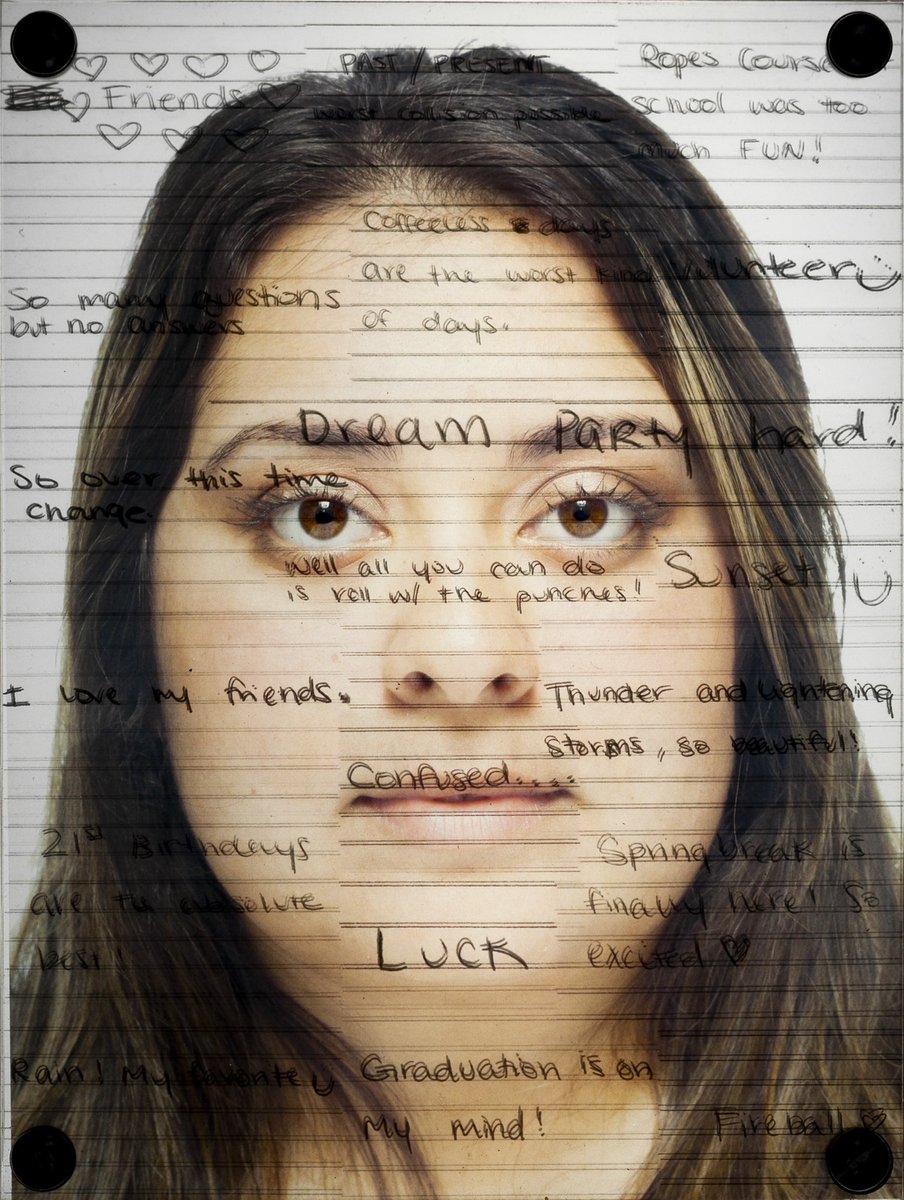 Friends
PAST / PRESENT
worst collision possible
Ropes Course
school was too
much FUN!!
Coffeeless days
are the worst kind
of days.
Volunteer
So many questions
but no answers
Dream
Party hard!!
So over this time
change.
Well all you can do
is roll w/ the punches!
Sunset
I love my friends.
Thunder and Lightening
storms, so beautiful!
Confused....
21st Birthdays
are the absolute
best!
Spring break is
finally here! So
excited
LUCK
Rain! My favorite
Graduation is on
My mind!
Fireball